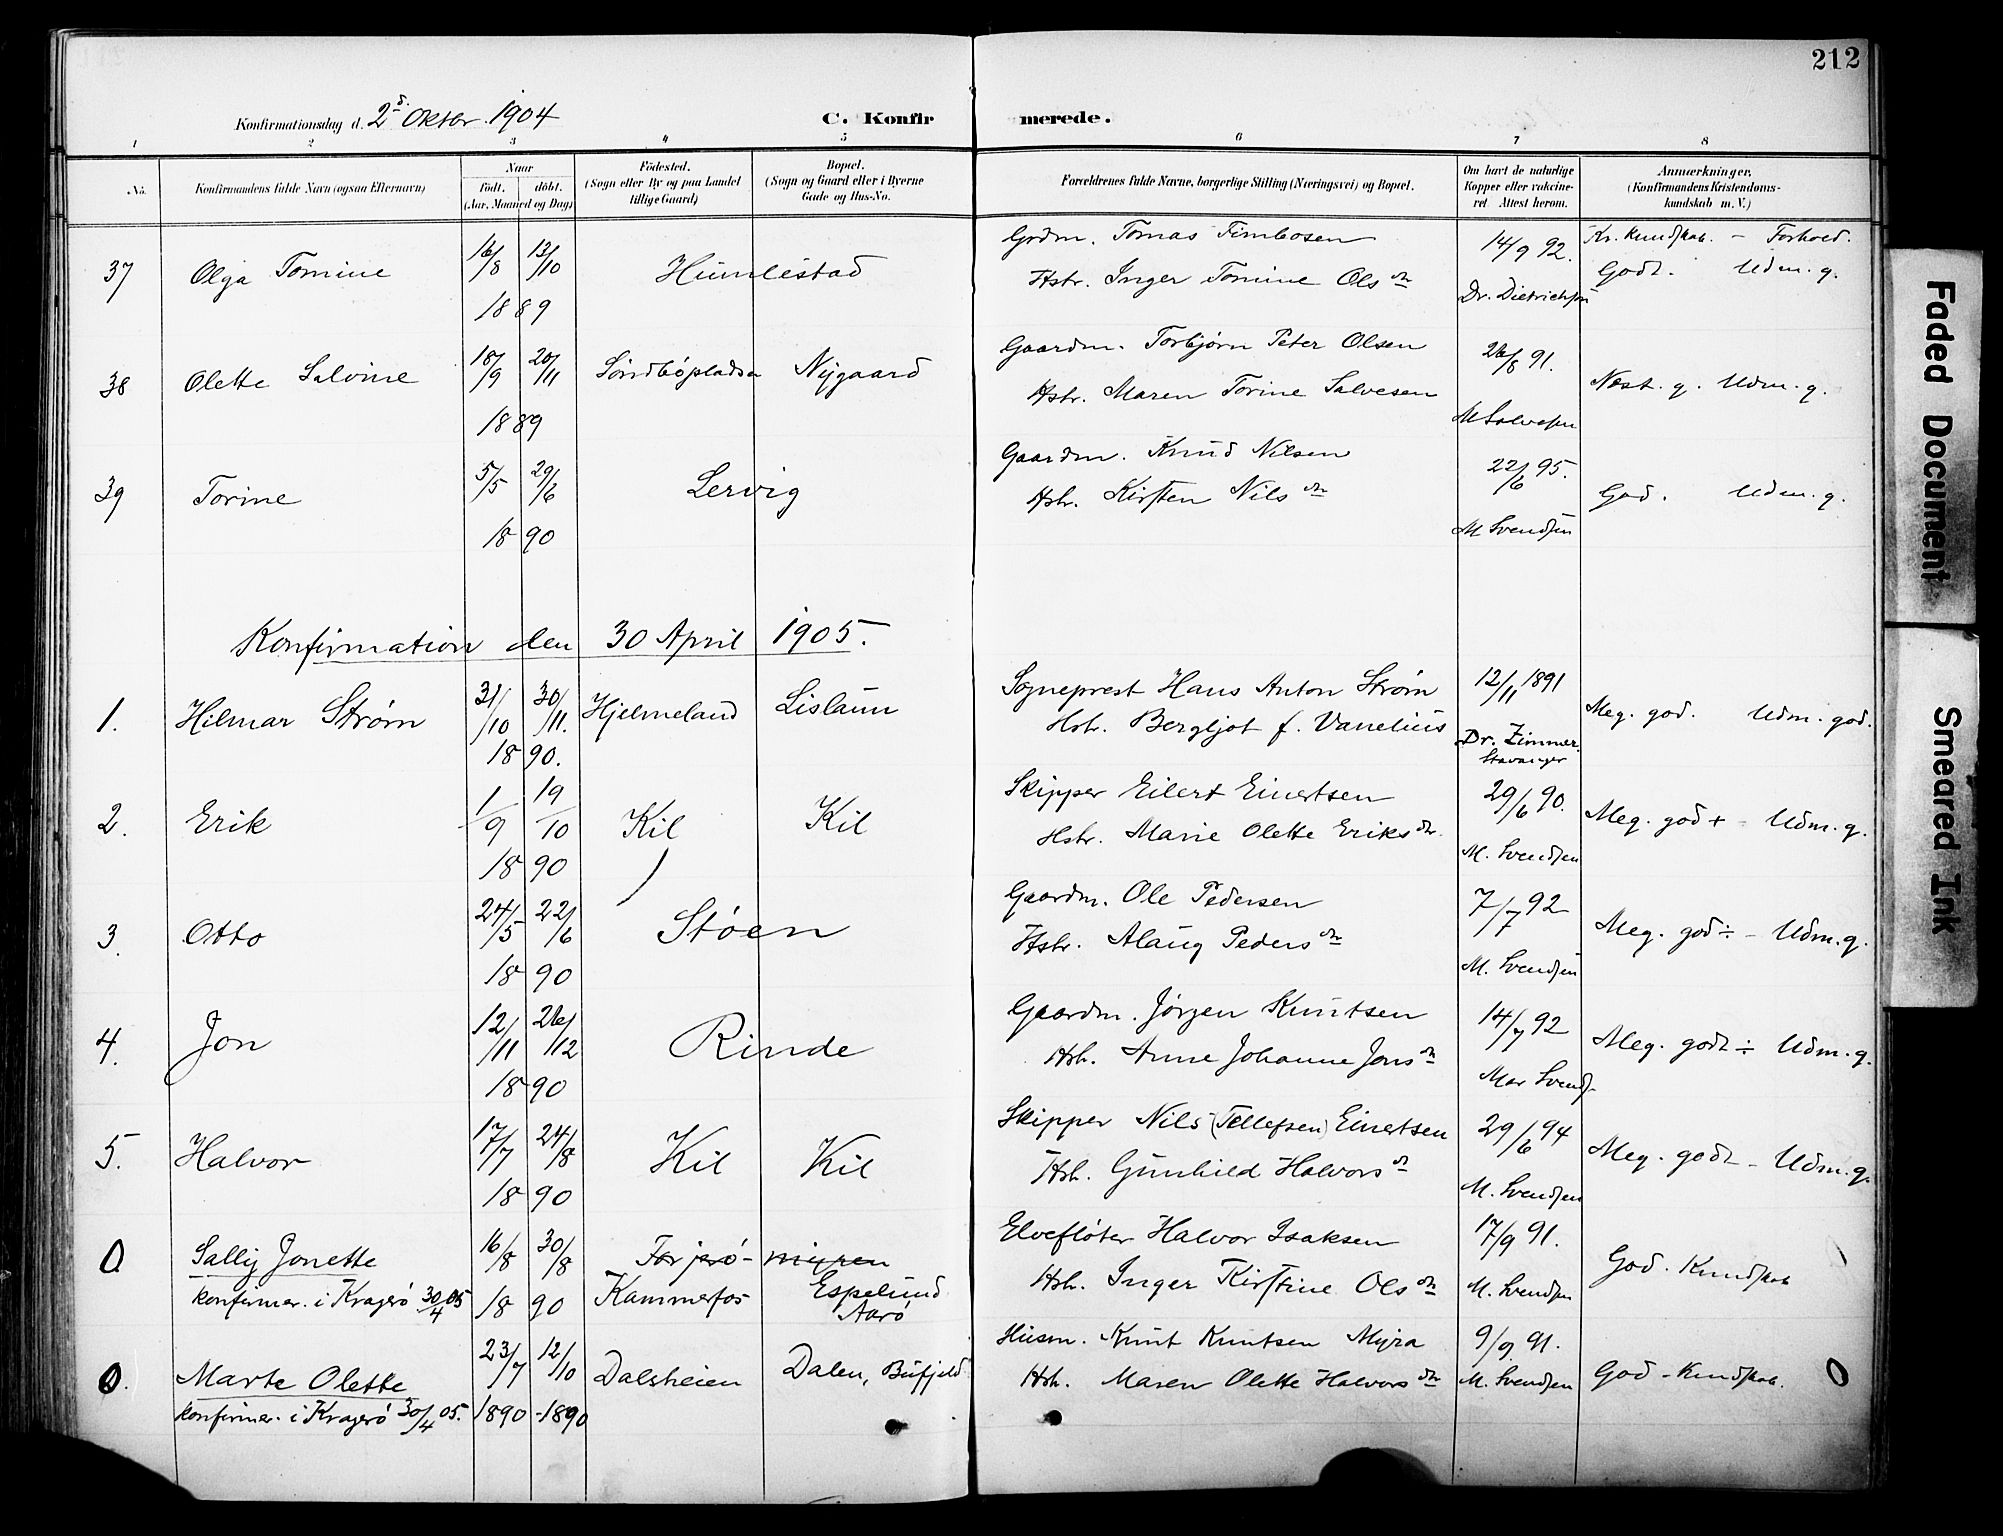 212
Konfirmationsdag d. 2d Oktbr. 1904
C. Konfirmerede.
1 2 3 4 5 6 7 8
No. Konfirmandens fulde Navn (ogsaa Efternavn) Naar født. døbt. (Aar, Maaned og Dag) Födested. (Sogn eller By og paa Landet tillige Gaard) Bopæl. (Sogn og Gaard eller i Byerne Gade og Hus-No. Forældrenes fulde Navne, borgerlige Stilling (Næringsvei) og Bopæl. Om havt de naturlige Kopper eller vakcineret. Attest herom. Anmærkninger. (Konfirmandens Kristendomskundskab m. V.)
37 Olga Tomine 16/8 13/10 1889 Humlestad
Grdm. Tomas Timbosen
Hstr. Inger Tomine Olsdtr
14/9 92. Dr. Dietrichsen
Kr. kundskab. - Forhold.
Godt. Udm. g.
38 Olette Salvine 18/9 20/11 1889 Søndbøpladsen Nygaard
Gaardm. Torbjørn Peter Olsen
Hstr. Maren Torine Salvesen
26/8 91. M Salvesen
Næst. g. Udm. g.
39 Torine 5/5 29/6 1890 Lervig
Gaardm. Knud Nilsen
Hstr. Kirsten Nilsdtr
22/6 95. M Svendsen
God. Udm. g.
Konfirmation den 30 April 1905.
1. Hilmar Strøm 31/10 30/11. 1890. Hjelmeland Lislaun
Sogneprest Hans Anton Strøm
Hstr. Bergljot f. Vanelius
12/11 1891 Dr. Zimmer. Stavanger
Meg. god. Udm. god.
2. Erik 1/9 19/10 1890 Kil Kil
Skipper Eilert Einertsen
Hstr. Marie Olette Eriksdtr.
29/6 90. M. Svendsen
Meg. god + - Udm. g.
3. Otto 24/5 22/6 1890 Støen
Gaardm. Ole Pedersen
Hstr. Alaug Pedersdtr
7/7 92 M. Svendsen
Meg. god ÷ - Udm. g.
4. Jon 12/11 26/12 1890 Rinde
Gaardm. Jørgen Knutsen
Hstr. Anne Johanne Jonsdtr
14/7 92 Mar Svends.
Meg. godt ÷ Udm. g.
5. Halvor 17/7 24/8 1890 Kil Kil
Skipper Nils (Tellefsen) Einertsen
Hstr. Gunhild Halvorsdtr
29/6 94 M. Svendsen
Meg. godt - Udm. g.
0 Sally Jonette 16/8 30/8 1890
konfirmer. i Kragerø 30/4 05
Kammerfos Espelund Aarø
Elvefløter Halvor Isaksen
Hstr. Inger Kirstine Olsdtr
17/9 91. M. Svendsen
God. Kundskab
0. Marte Olette 23/7 12/10 1890 - 1890
konfirmer. i Kragerø 30/4 05.
Dalsheien Dalen, Bufjeld
Husm. Knut Knutsen Myra
Hstr. Maren Olette Halvorsdtr
9/9. 91. M. Svendsen
God - Kundskab. 0
Faded Document
Smeared Ink